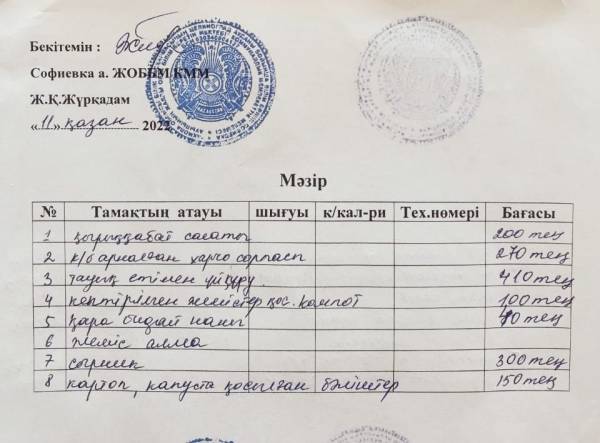 Бекітемін :
Софиевка а. ЖОББМ КММ
Ж.Қ.Жұрқадам
«11» қазан 2022
Мәзір
№ Тамақтың атауы шығуы к/кал-ри Тех.нөмері Бағасы
1 қырыққабат салаты 200 тең
2 к/б арналған харчо сорпасы 270 тең
3 тауық етімен 410 тең
4 кептірілген жемістер қос. компот 100 тең
5 қара бидай наны 40 тең
6 жеміс алма
7 сырник 300 тең
8 картоп, капуста қосылған бәліштер 150 тең